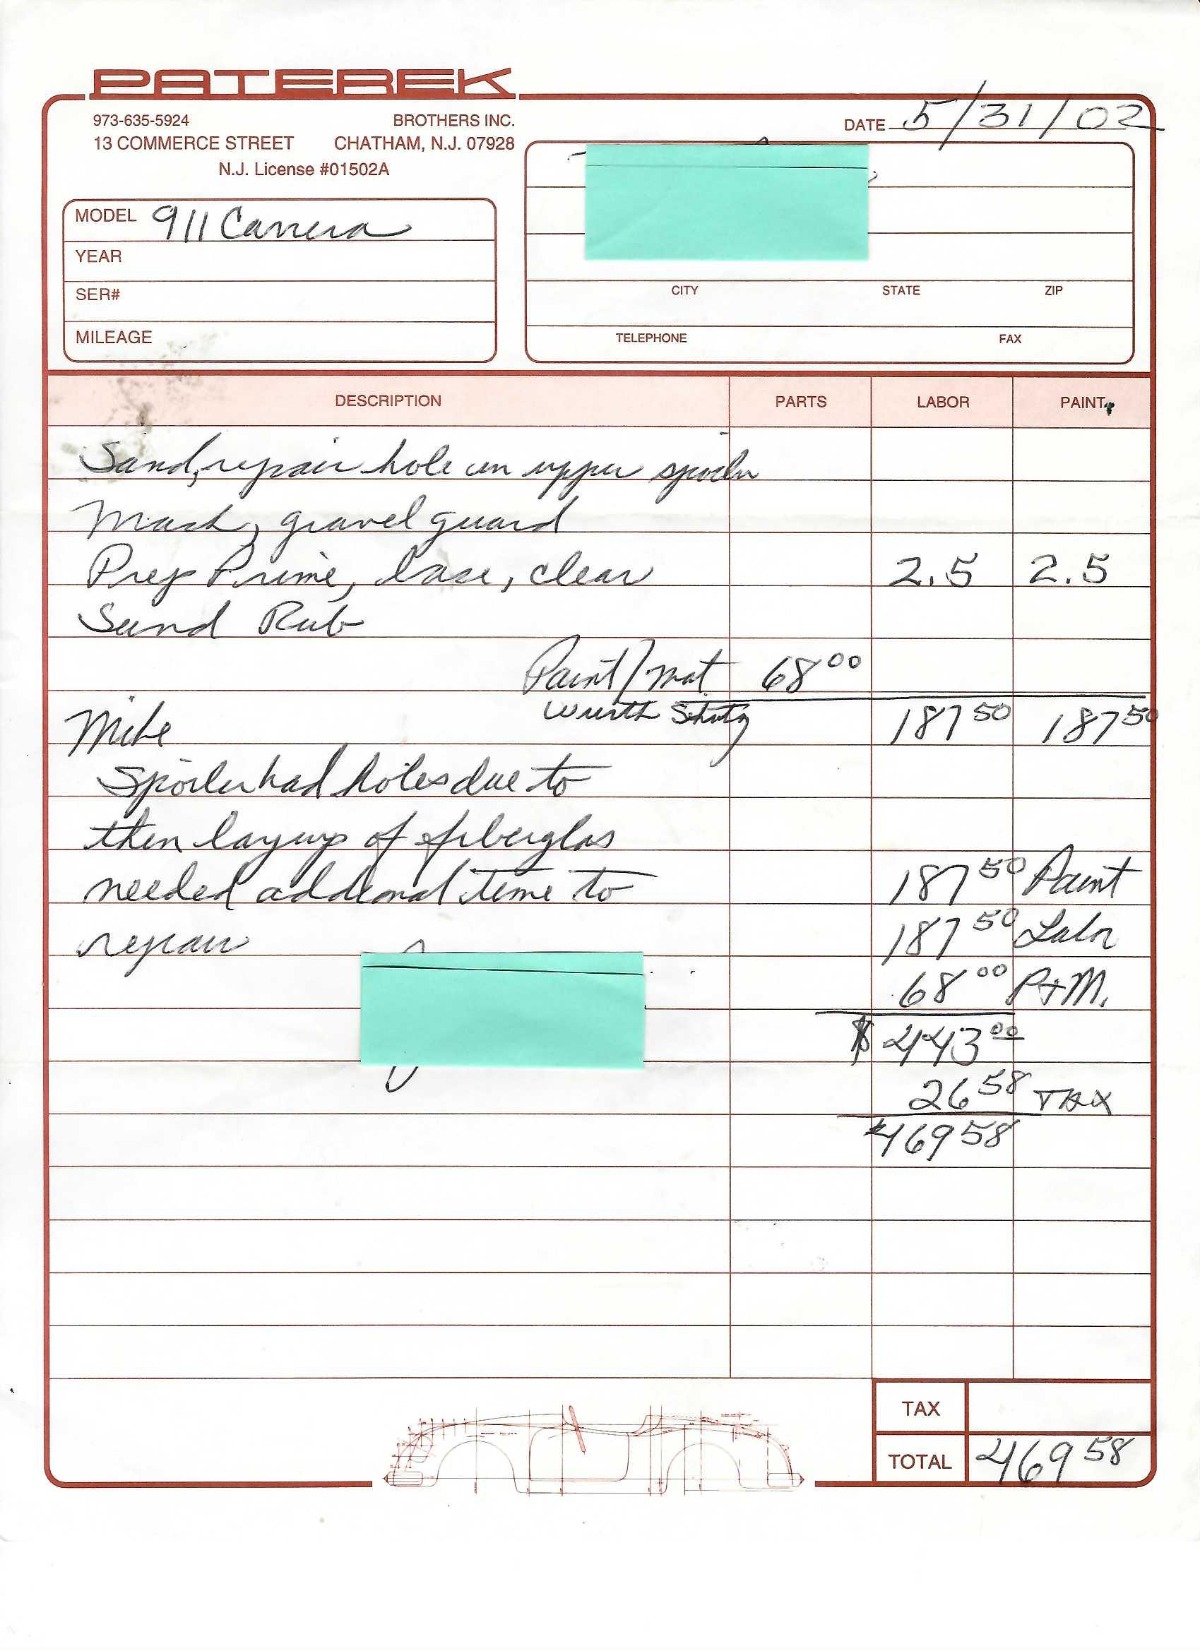 PATEREK
973-635-5924 BROTHERS INC.
13 COMMERCE STREET CHATHAM, N.J. 07928
N.J. License #01502A
DATE 5/31/02
MODEL 911 Carrera
YEAR
SER#
MILEAGE
CITY STATE ZIP
TELEPHONE FAX
DESCRIPTION PARTS LABOR PAINT
Sand, repair hole on upper spoiler
Mask, gravel guard
Prep Prime, base, clear 2.5 2.5
Sand Rub
Paint/mat 68 00
Wurth Schutz 187 50 187 50
Mike
Spoiler had holes due to
then layup of fiberglas
needed addional time to
repair
187 50 Paint
187 50 Labor
68 00 P+M.
$ 443 00
26 58 TAX
$469 58
TAX
TOTAL 469 58